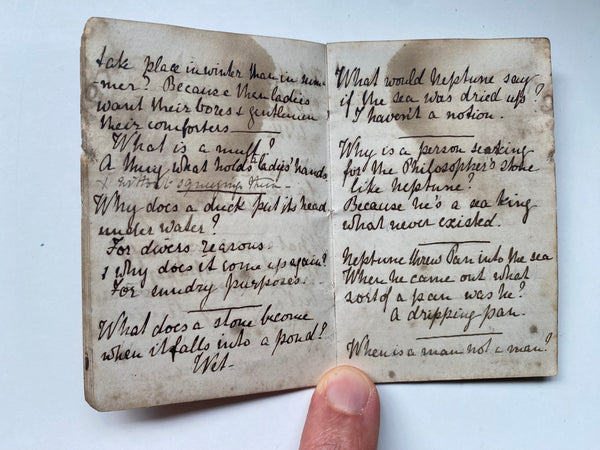 take place in winter than in sum-
mer? Because then ladies
want their bores & gentlemen
their comforters
What is a muff?
A thing what holds a ladies' hands
& without squeezing them -
Why does a duck put its head
under water?
For divers reasons.
& why does it come up again?
For sundry purposes.
What does a stone become
when it falls into a pond?
Wet -
What would Neptune say
if the sea was dried up?
I haven't a notion.
Why is a person seaking
for the Philosopher's stone
like Neptune?
Because he's a sea king
what never existed.
Neptune threw Pan into the sea
When he came out what
sort of a pan was he?
A dripping pan.
When is a man not a man?